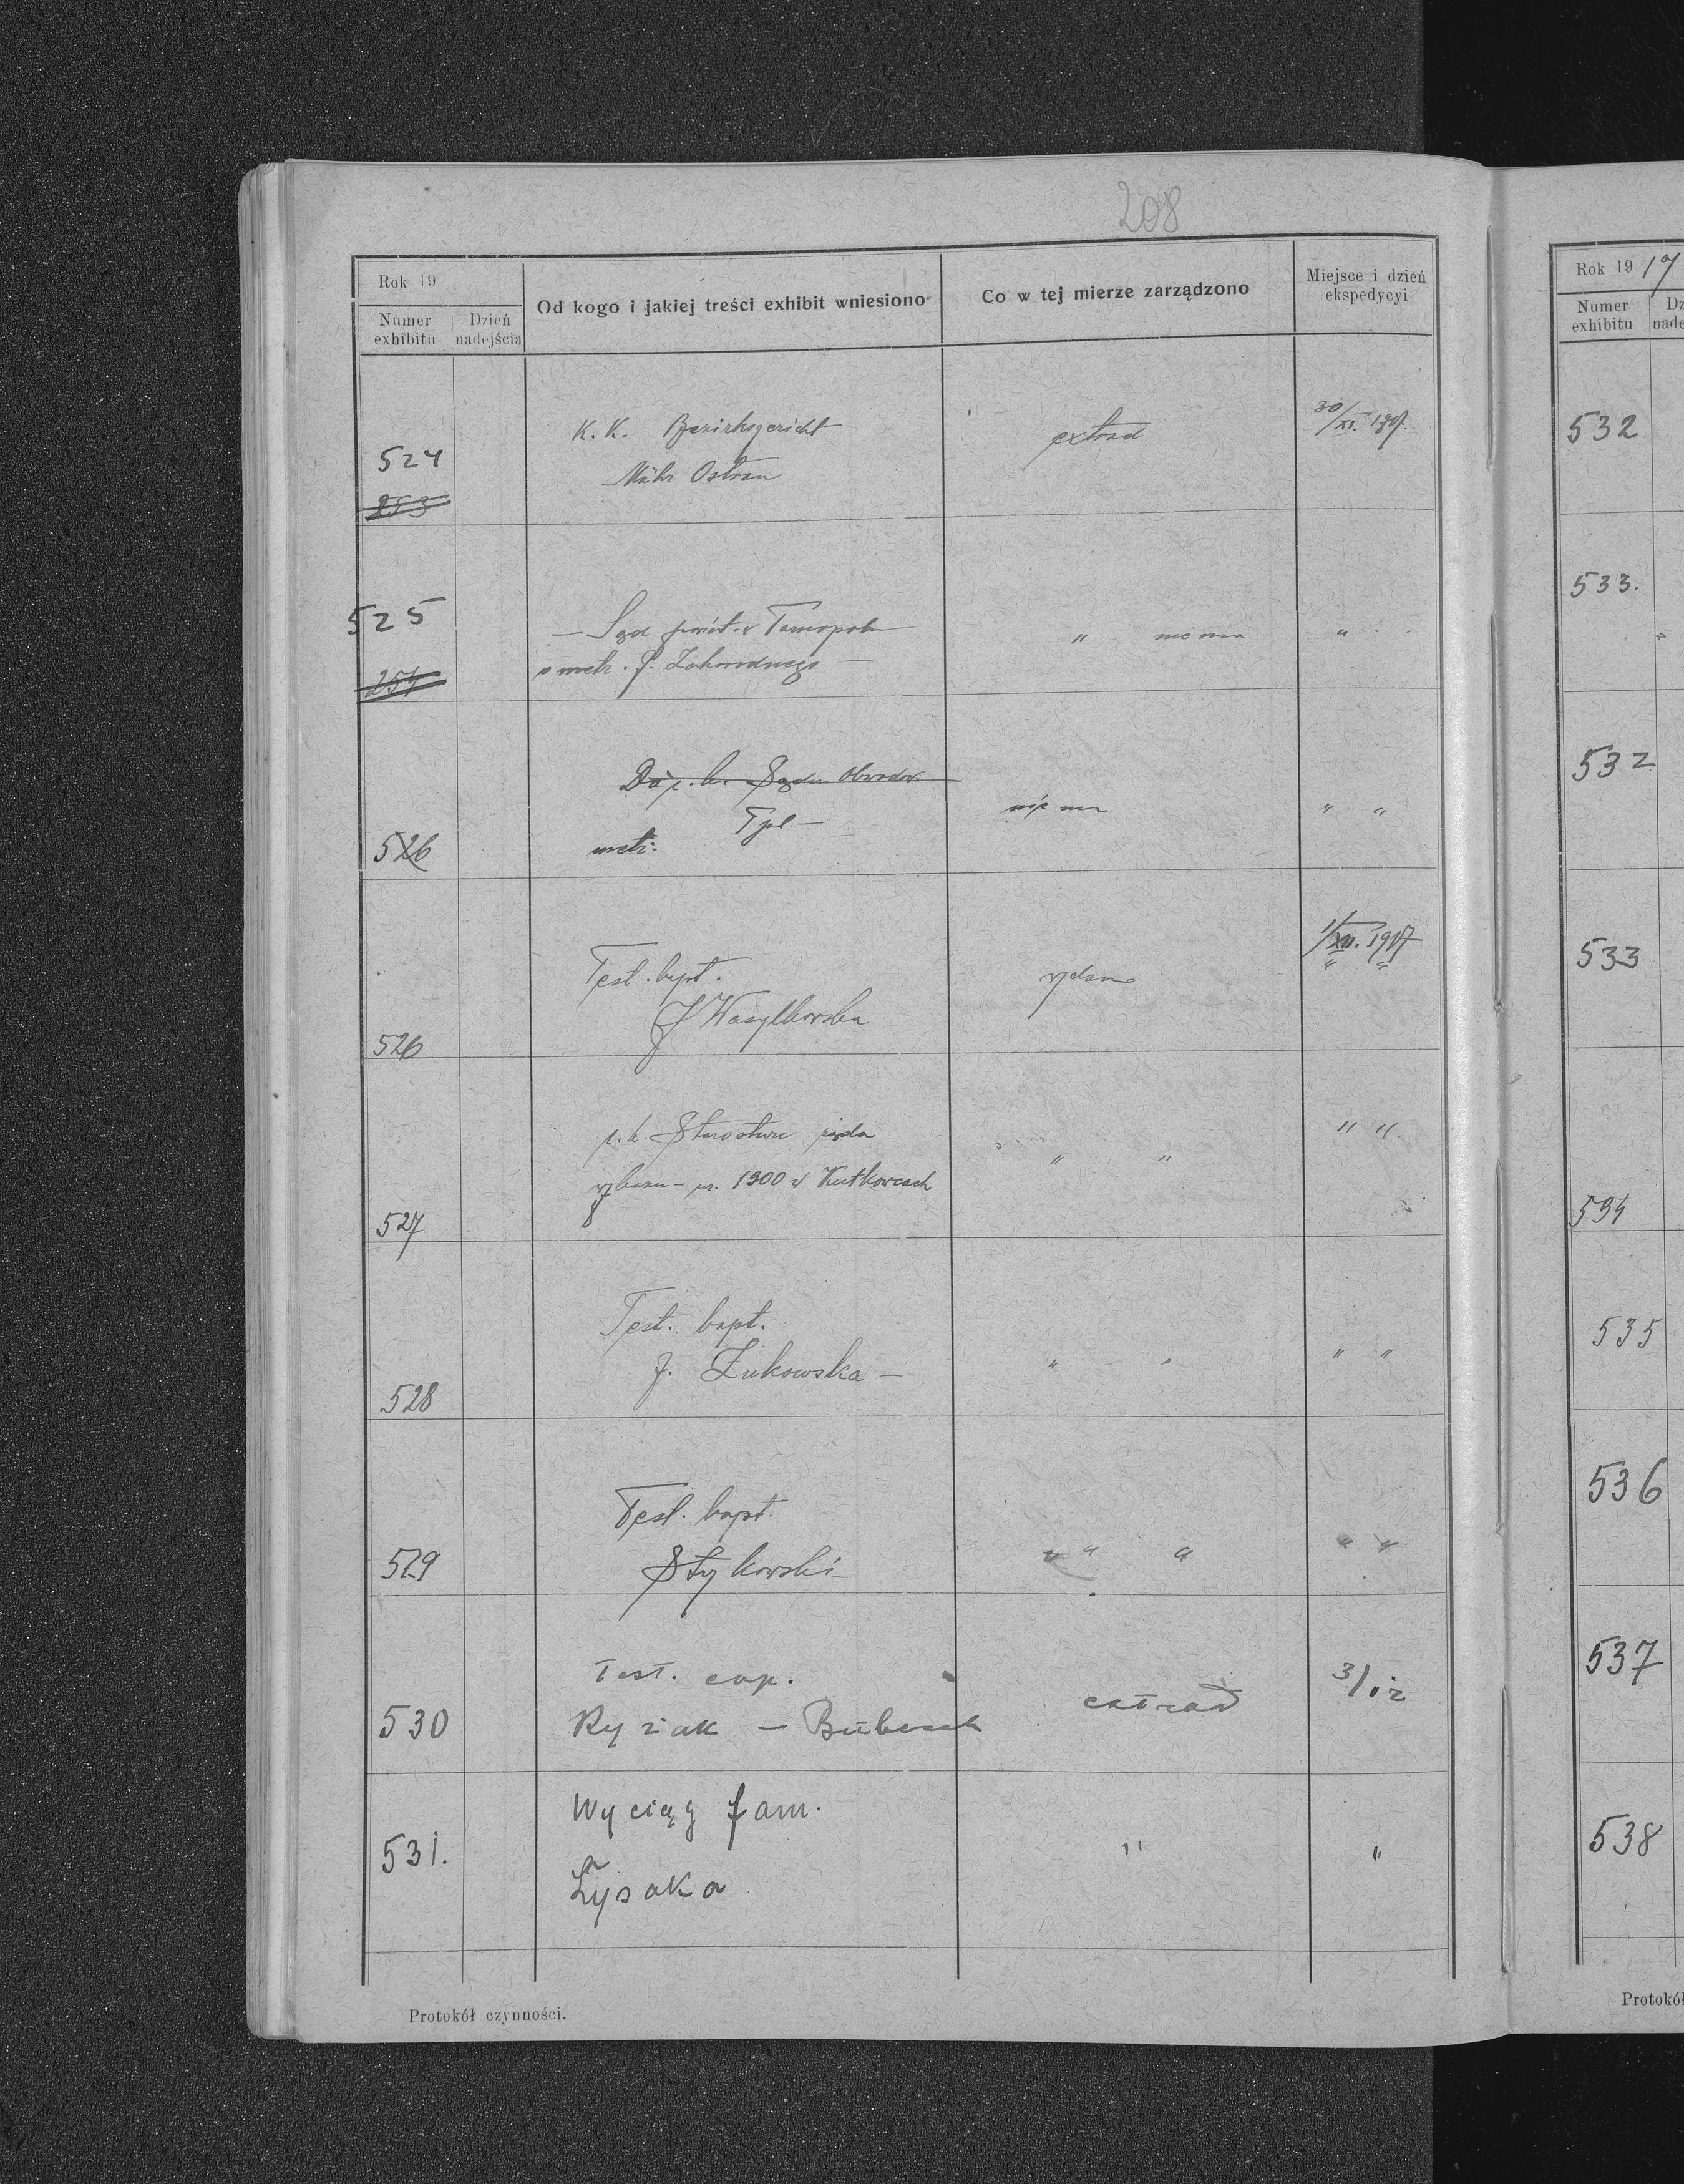 208
Rok 19
Numer exhibitu
Dzień nadejścia
Od kogo i jakiej treści exhibit wniesiono
Co w tej mierze zarządzono
Miejsce i dzień ekspedycyi
524
253
K. K. Bezirksgericht
Mähr Ostrau
extrad
30/XI. 1917.
525
254
— Sąd powiat. w Tarnopolu
o metr. J. Zahorodnego —
" nie ma
"
526
Do c. k. Sądu obwodow.
Tpl —
metr.
nie ma
" "
526
Test. bapt.
J Wasylkowska
wydano
1/XII. 1917
" "
527
c. k. Starostwu
wykazu – ur. 1900 w Kutkowcach
" "
" "
528
Test. bapt.
J. Żukowska —
" "
" "
529
Test. bapt.
Stykowski —
" " "
" "
530
Test. cop.
Ryziak —
extrad
3/12
531.
Wyciąg fam.
Łysaka
"
"
Protokół czynności.
Rok 1917
Numer exhibitu
532
533.
532
533
534
535
536
537
538